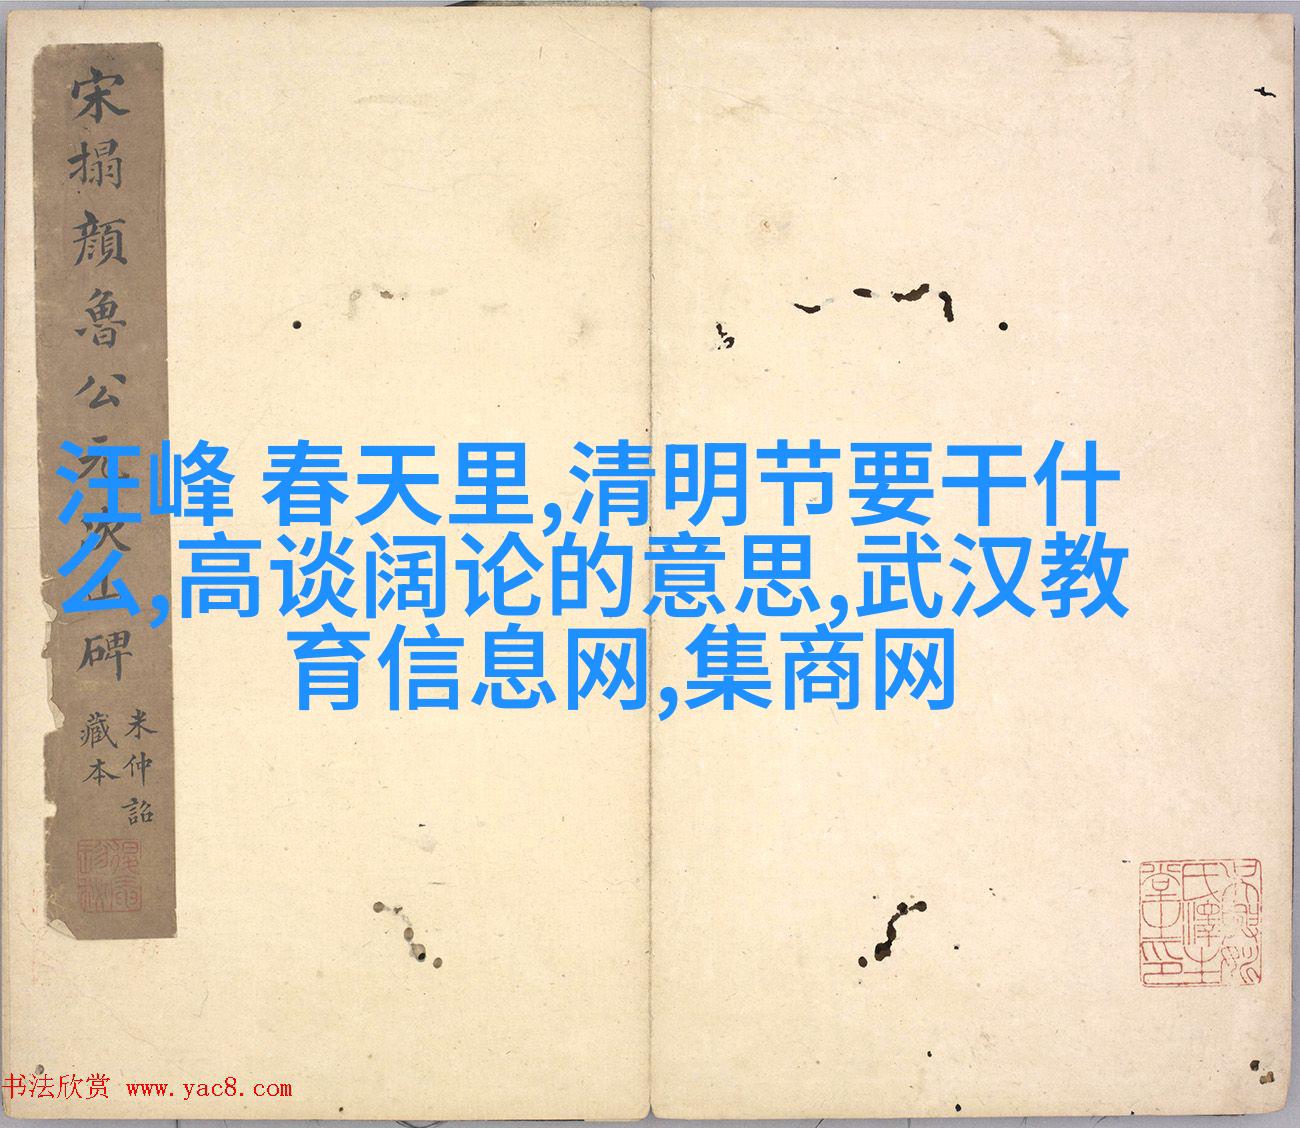 宋搨顔魯公元次山碑
米仲詔
藏本
汪峰 春天里,清明节要干什
么,高谈阔论的意思,武汉教
育信息网,集商网
书法欣赏 www.yac8.com